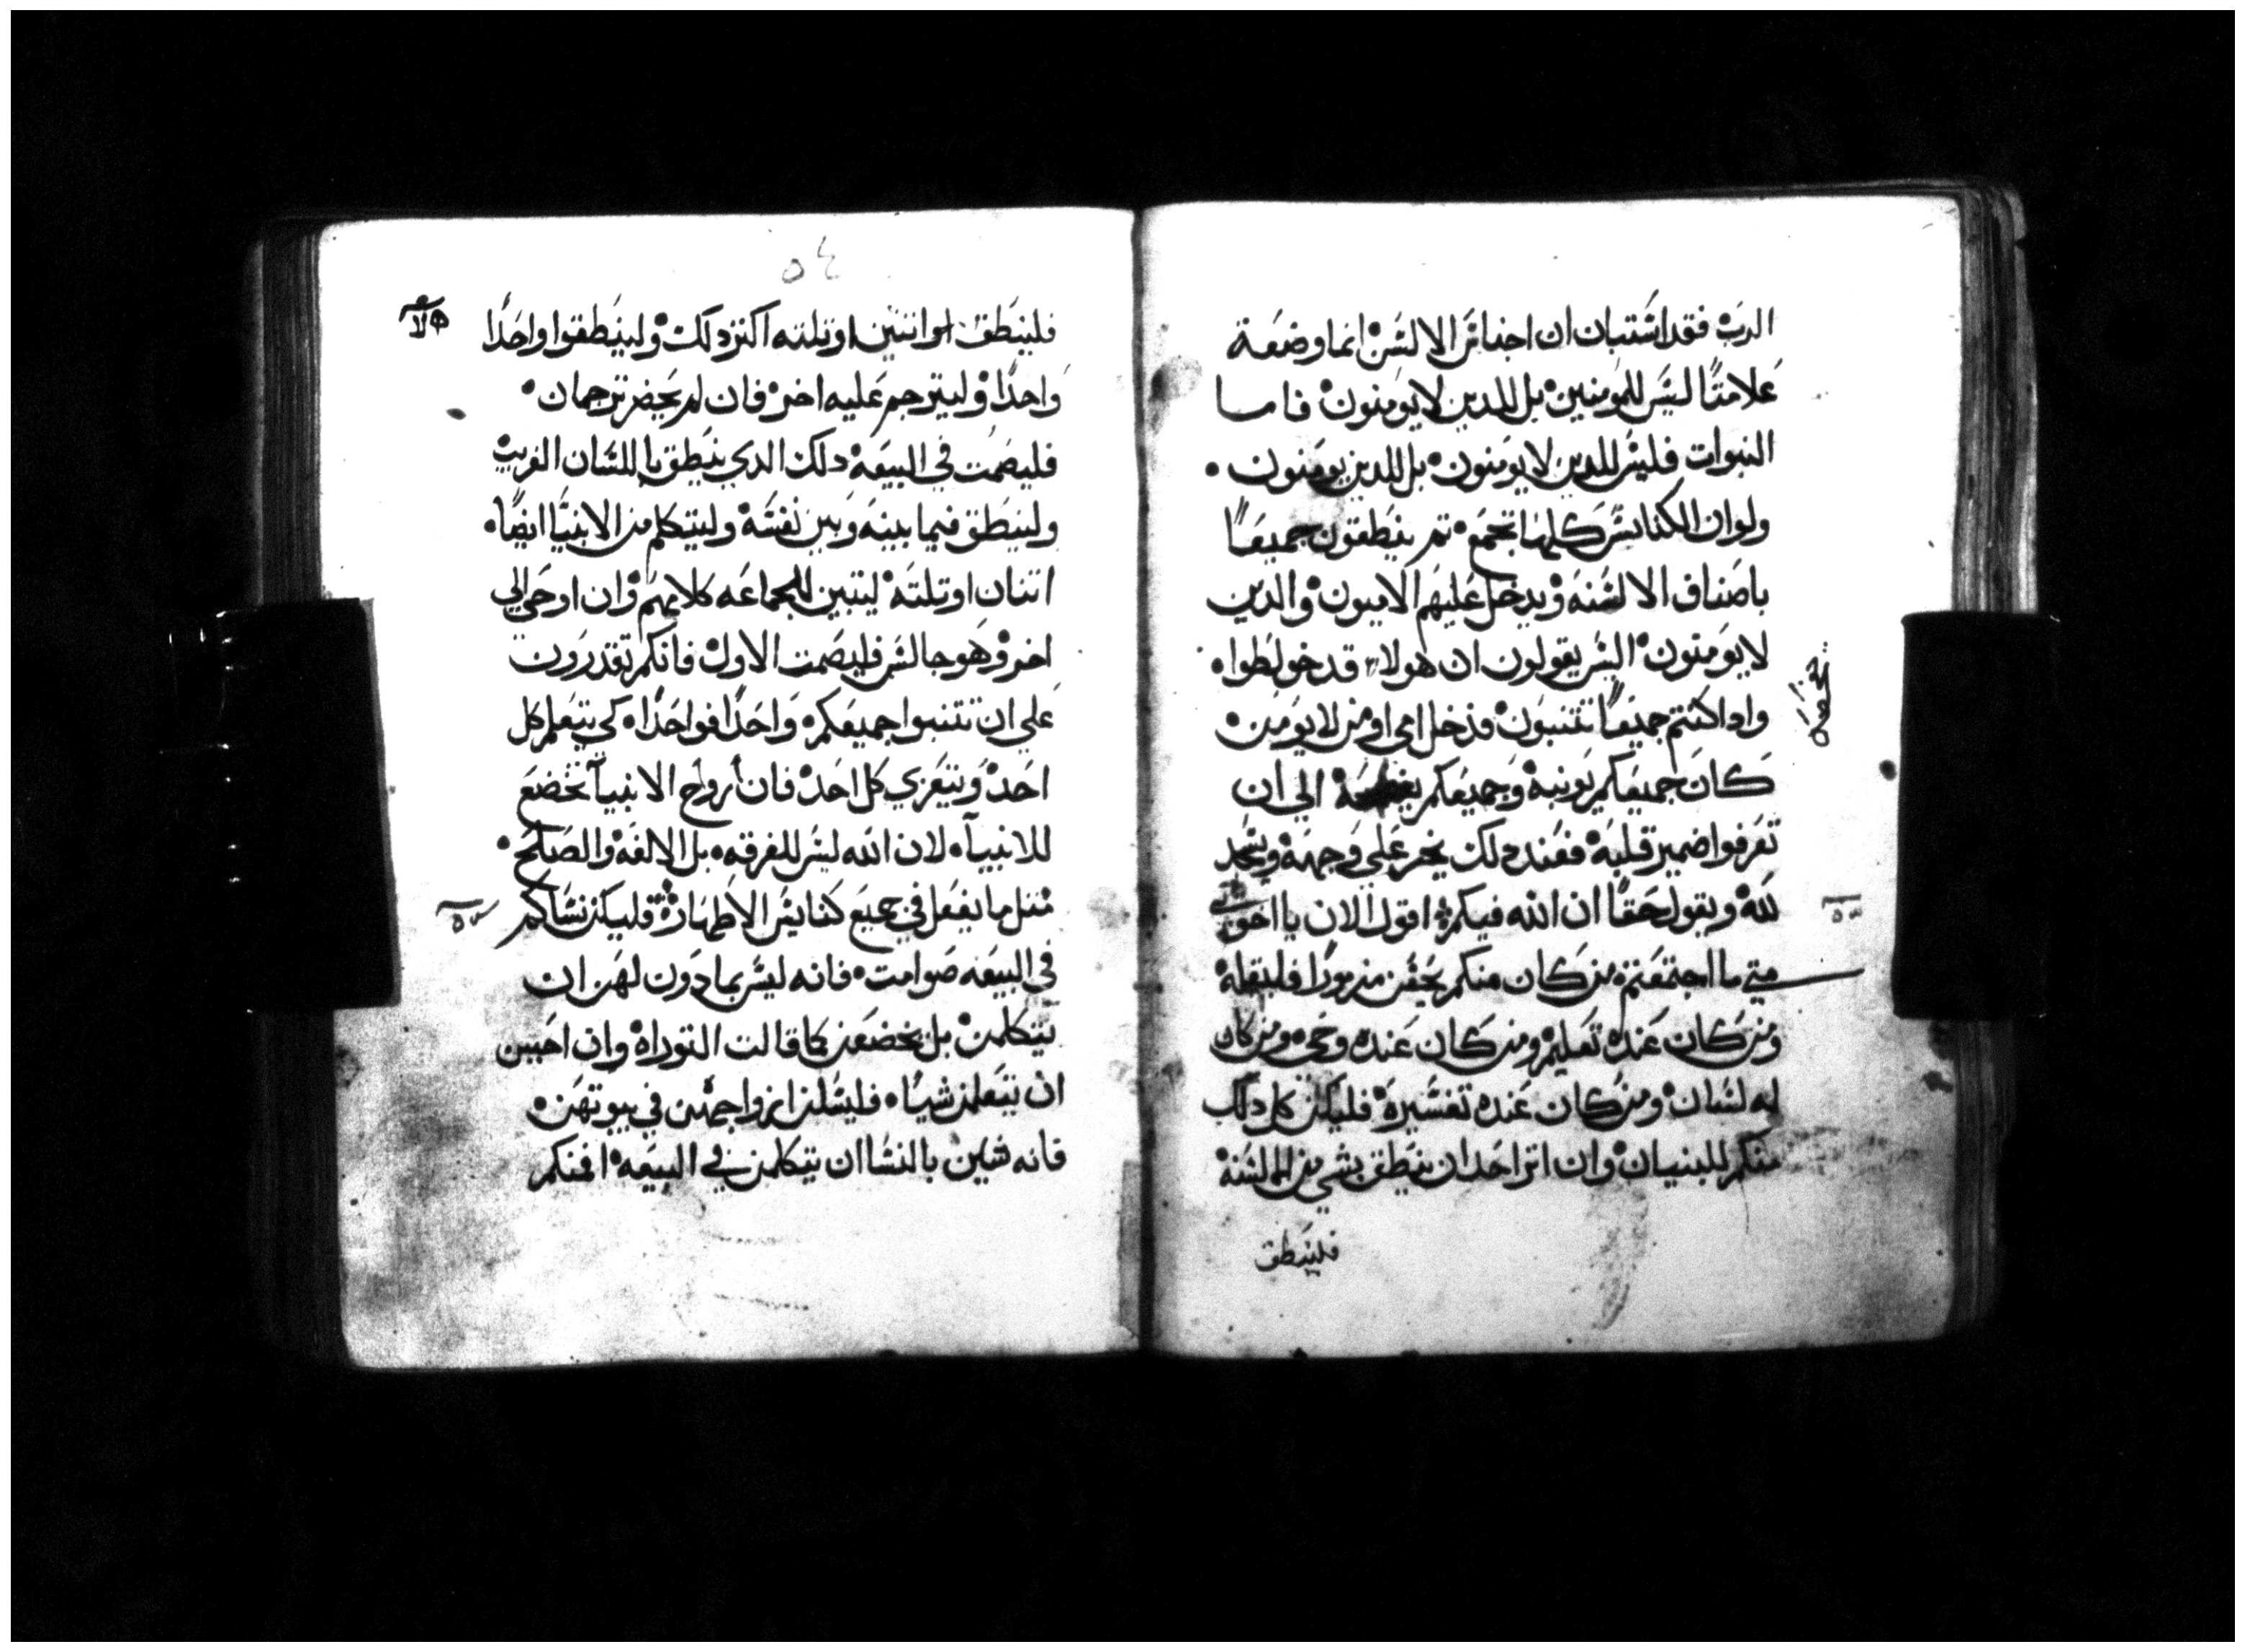 الرب فقد اشتبان ان اجناس الالسن انما وضعة
علامتًا ليس للمومنين بل للدين لا يومنون فاما
النبوات فليس للدين لا يومنون بل للدين يومنون
ولوان الكنايس كلها تجمع تم ينطقون جميعًا
باصناف الالسنه ويدخل عليهم الاميون والدين
لا يومنون اليس يقولون ان هولاء قد خولطوا
وادا كنتم جميعًا تتنبون فدخل امي اومن لا يومن
كان جميعكم يونبه وجميعكم الي ان
تعرفوا ضمير قلبه فعند دلك يخر علي وجهه ويسجد
لله ويقول حقًا ان الله فيكم اقول الان يا اخوتي
متي ما اجتمعتم من كان منكم يحفن مزمورًا فليقله
ومن كان عنده تعليم ومن كان عنده وحي ومن كان
له لسان ومن كان عنده تفسيره فليكن كل دلك
منكم للبنيان وان اتر احد ان ينطق بشي من الالسنه
فلينطق
يفضحه
٥٤
فلينطق اتنين اوتلته اكتر دلك ولينطقوا واحدًا
واحدًا وليترجم عليه اخر فان لم يحضر ترجمان
فليصمت في البيعه دلك الدي ينطق باللسان الغريب
ولينطق فيما بينه وبين نفسه وليتكلم من الانبيا ايضًا
اتنان اوتلته ليتبين للجماعه كلامهم وان اوحي الي
اخر وهو جالس فليصمت الاول فانكم تقدرون
علي ان تتنبوا جميعكم واحدًا فواحدًا كي يتعلم كل
احد ويتعزي كل احد فان أرواح الانبيآ تخضع
للانبيآ لان الله ليس للفرقه بل الالفه والصلح
متل ما يفعل في جميع كنايس الاطهار فليكن نساكم
في البيعه صوامت فانه ليس بمادون لهن ان
يتكلمن بل يخضعن كما قالت التوراه وان احببن
ان يتعلمن شيًا فليسلن ازواجهن في بيوتهن
فانه شين بالنسا ان يتكلمن في البيعه افمنكم